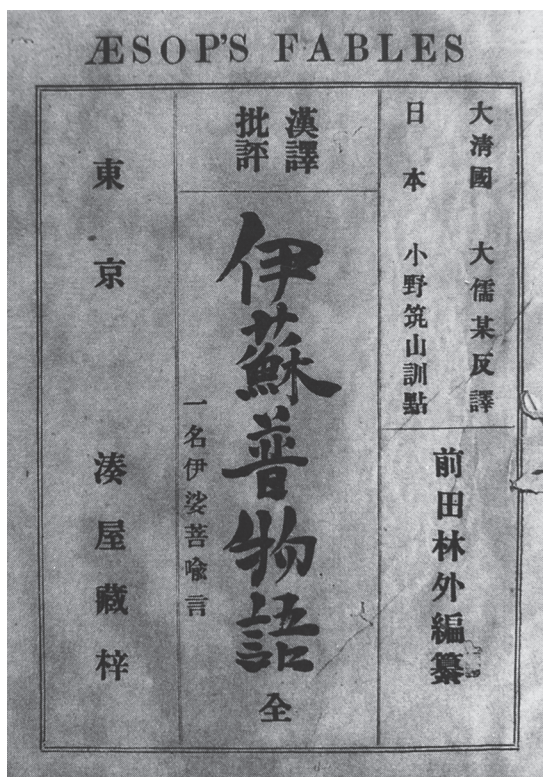 ÆSOP'S FABLES
大清國 大儒某反譯
日本 小野筑山訓點
前田林外編纂
漢譯
批評
伊蘇普物語 全
一名伊娑菩喩言
東京 湊屋藏梓